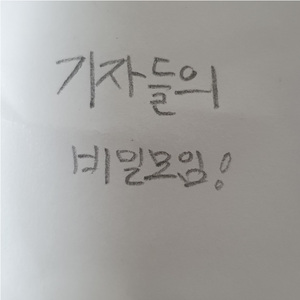 기자들의
비밀모임!